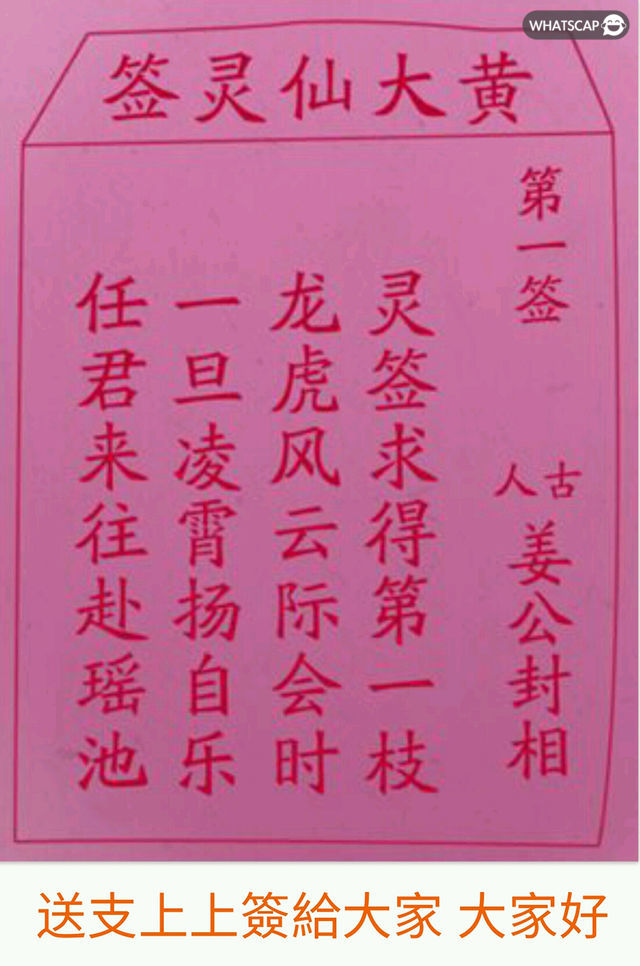 WHATSCAP
黄大仙灵签
第一签
古人 姜公封相
灵签求得第一枝
龙虎风云际会时
一旦凌霄扬自乐
任君来往赴瑶池
送支上上簽給大家 大家好